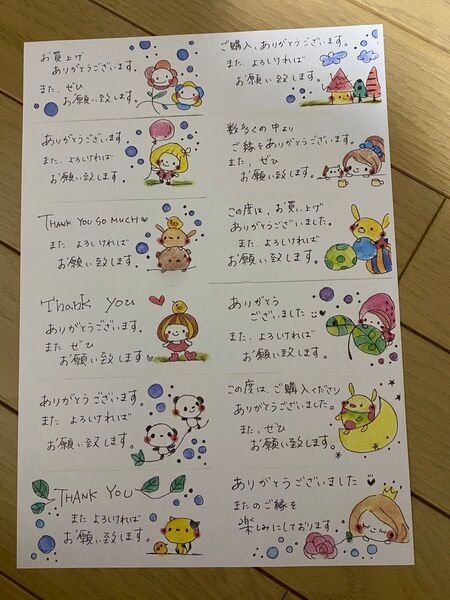 お買上げ
ありがとうございます。
また、ぜひ
お願い致します。
ご購入、ありがとうございます。
また、よろしければ
お願い致します。
ありがとうございます。
また、よろしければ
お願い致します。
数多くの中より
ご縁をありがとうございます。
また、ぜひ
お願い致します。
THANK YOU SO MUCH
また、よろしければ
お願い致します。
この度は、お買い上げ
ありがとうございました。
また、よろしければ
お願い致します。
Thank You
ありがとうございます。
また ぜひ
お願い致します
ありがとう
ございました
また、よろしければ
お願い致します。
ありがとうございます。
また よろしければ
お願い致します。
この度は、ご購入くださり
ありがとうございました。
また、ぜひ
お願い致します。
THANK YOU
また よろしければ
お願い致します。
ありがとうございました
またのご縁を
楽しみにしております。